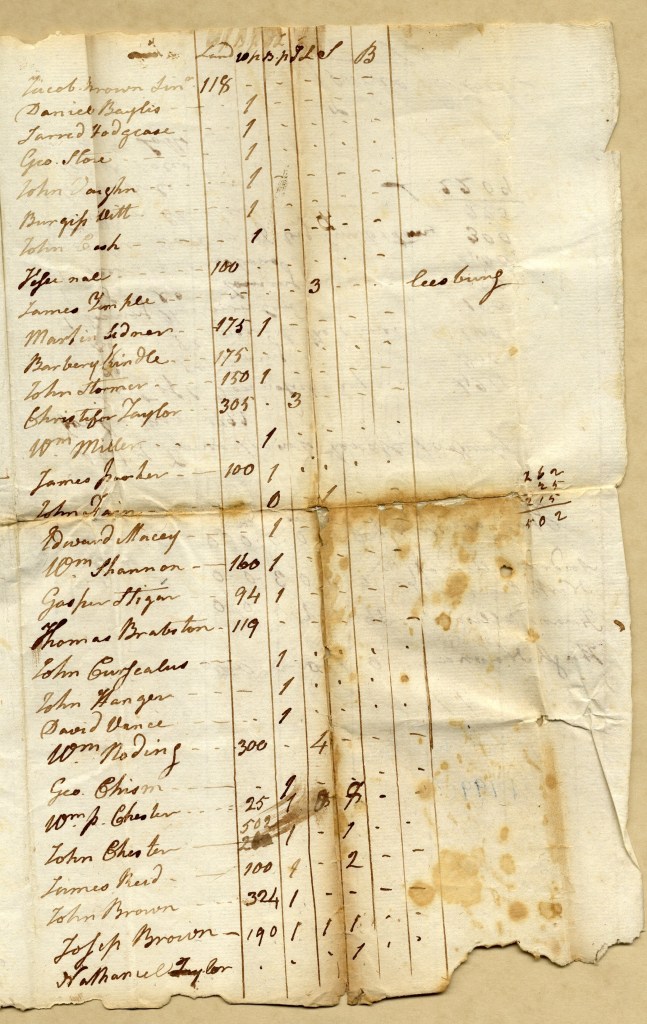 Land wp B.p S L S B
Jacob Brown Sinr 118 - - - - - -
Daniel Baylis - 1 - - - - -
Jarred Hodgcase 1
Geo. Stone 1
John Vaughn - 1
Burgiss Witt - 1
John Cash 1
100
James Temple 3 Leesburg
Martin Sidner - 175 1
Barbery Kindle - 175 -
John Stormer - 150 1
Christifor Taylor - 305 3
Wm Miller 1
James Parker - 100 1
John Fain - 0 1
262
25
215
502
Edward Macey - 1
Wm Shannon - 160 1
Gasper Stigar 94 1
Thomas Brabston - 119
John - 1
John Hanger - 1
David Vance - 1
Wm Noding - 300 - 4
Geo. Chism - 1
Wm p. Chester - 25 1
502
John Chester 1 1
James Reed - 100 1 2
John Brown 324 1
Josep Brown - 190 1 1 1
Nathaniell Taylor 1